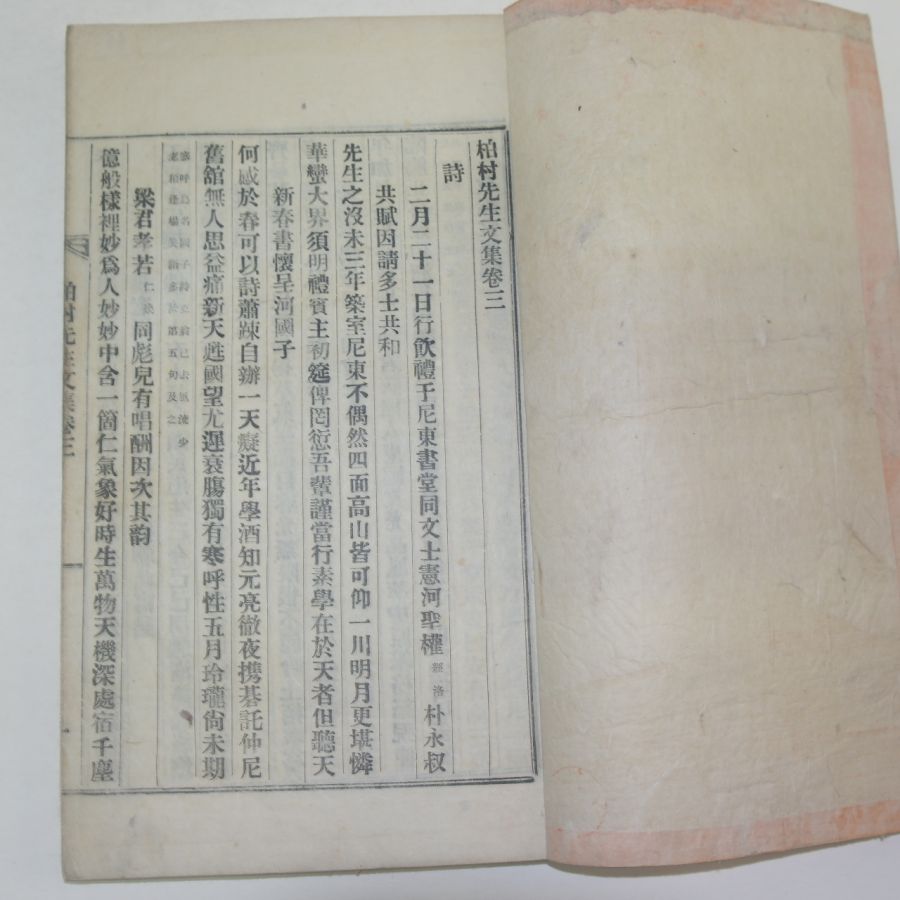 柏村先生文集卷三
詩
二月二十一日行飮禮于尼東書堂同文士憲河聖權 經洛 朴永叔
共賦因請多士共和
先生之沒未三年築室尼東不偶然四面高山皆可仰一川明月更堪憐
華蠻大界須明禮賓主初筵俾罔愆吾輩謹當行素學在於天者但聽天
新春書懷呈河國子
何感於春可以詩蕭踈自辦一天癡近年學酒知元亮徹夜携碁託仲尼
舊舘無人思益痛新天甦國望尤遲衰膓獨有寒呼性五月玲瓏尙未期
第五句及之
梁君孝若 仁 同彪兒有唱酬因次其韵
億般樣裡妙爲人妙妙中含一箇仁氣象好時生萬物天機深處宿千塵
柏村先生文集卷三